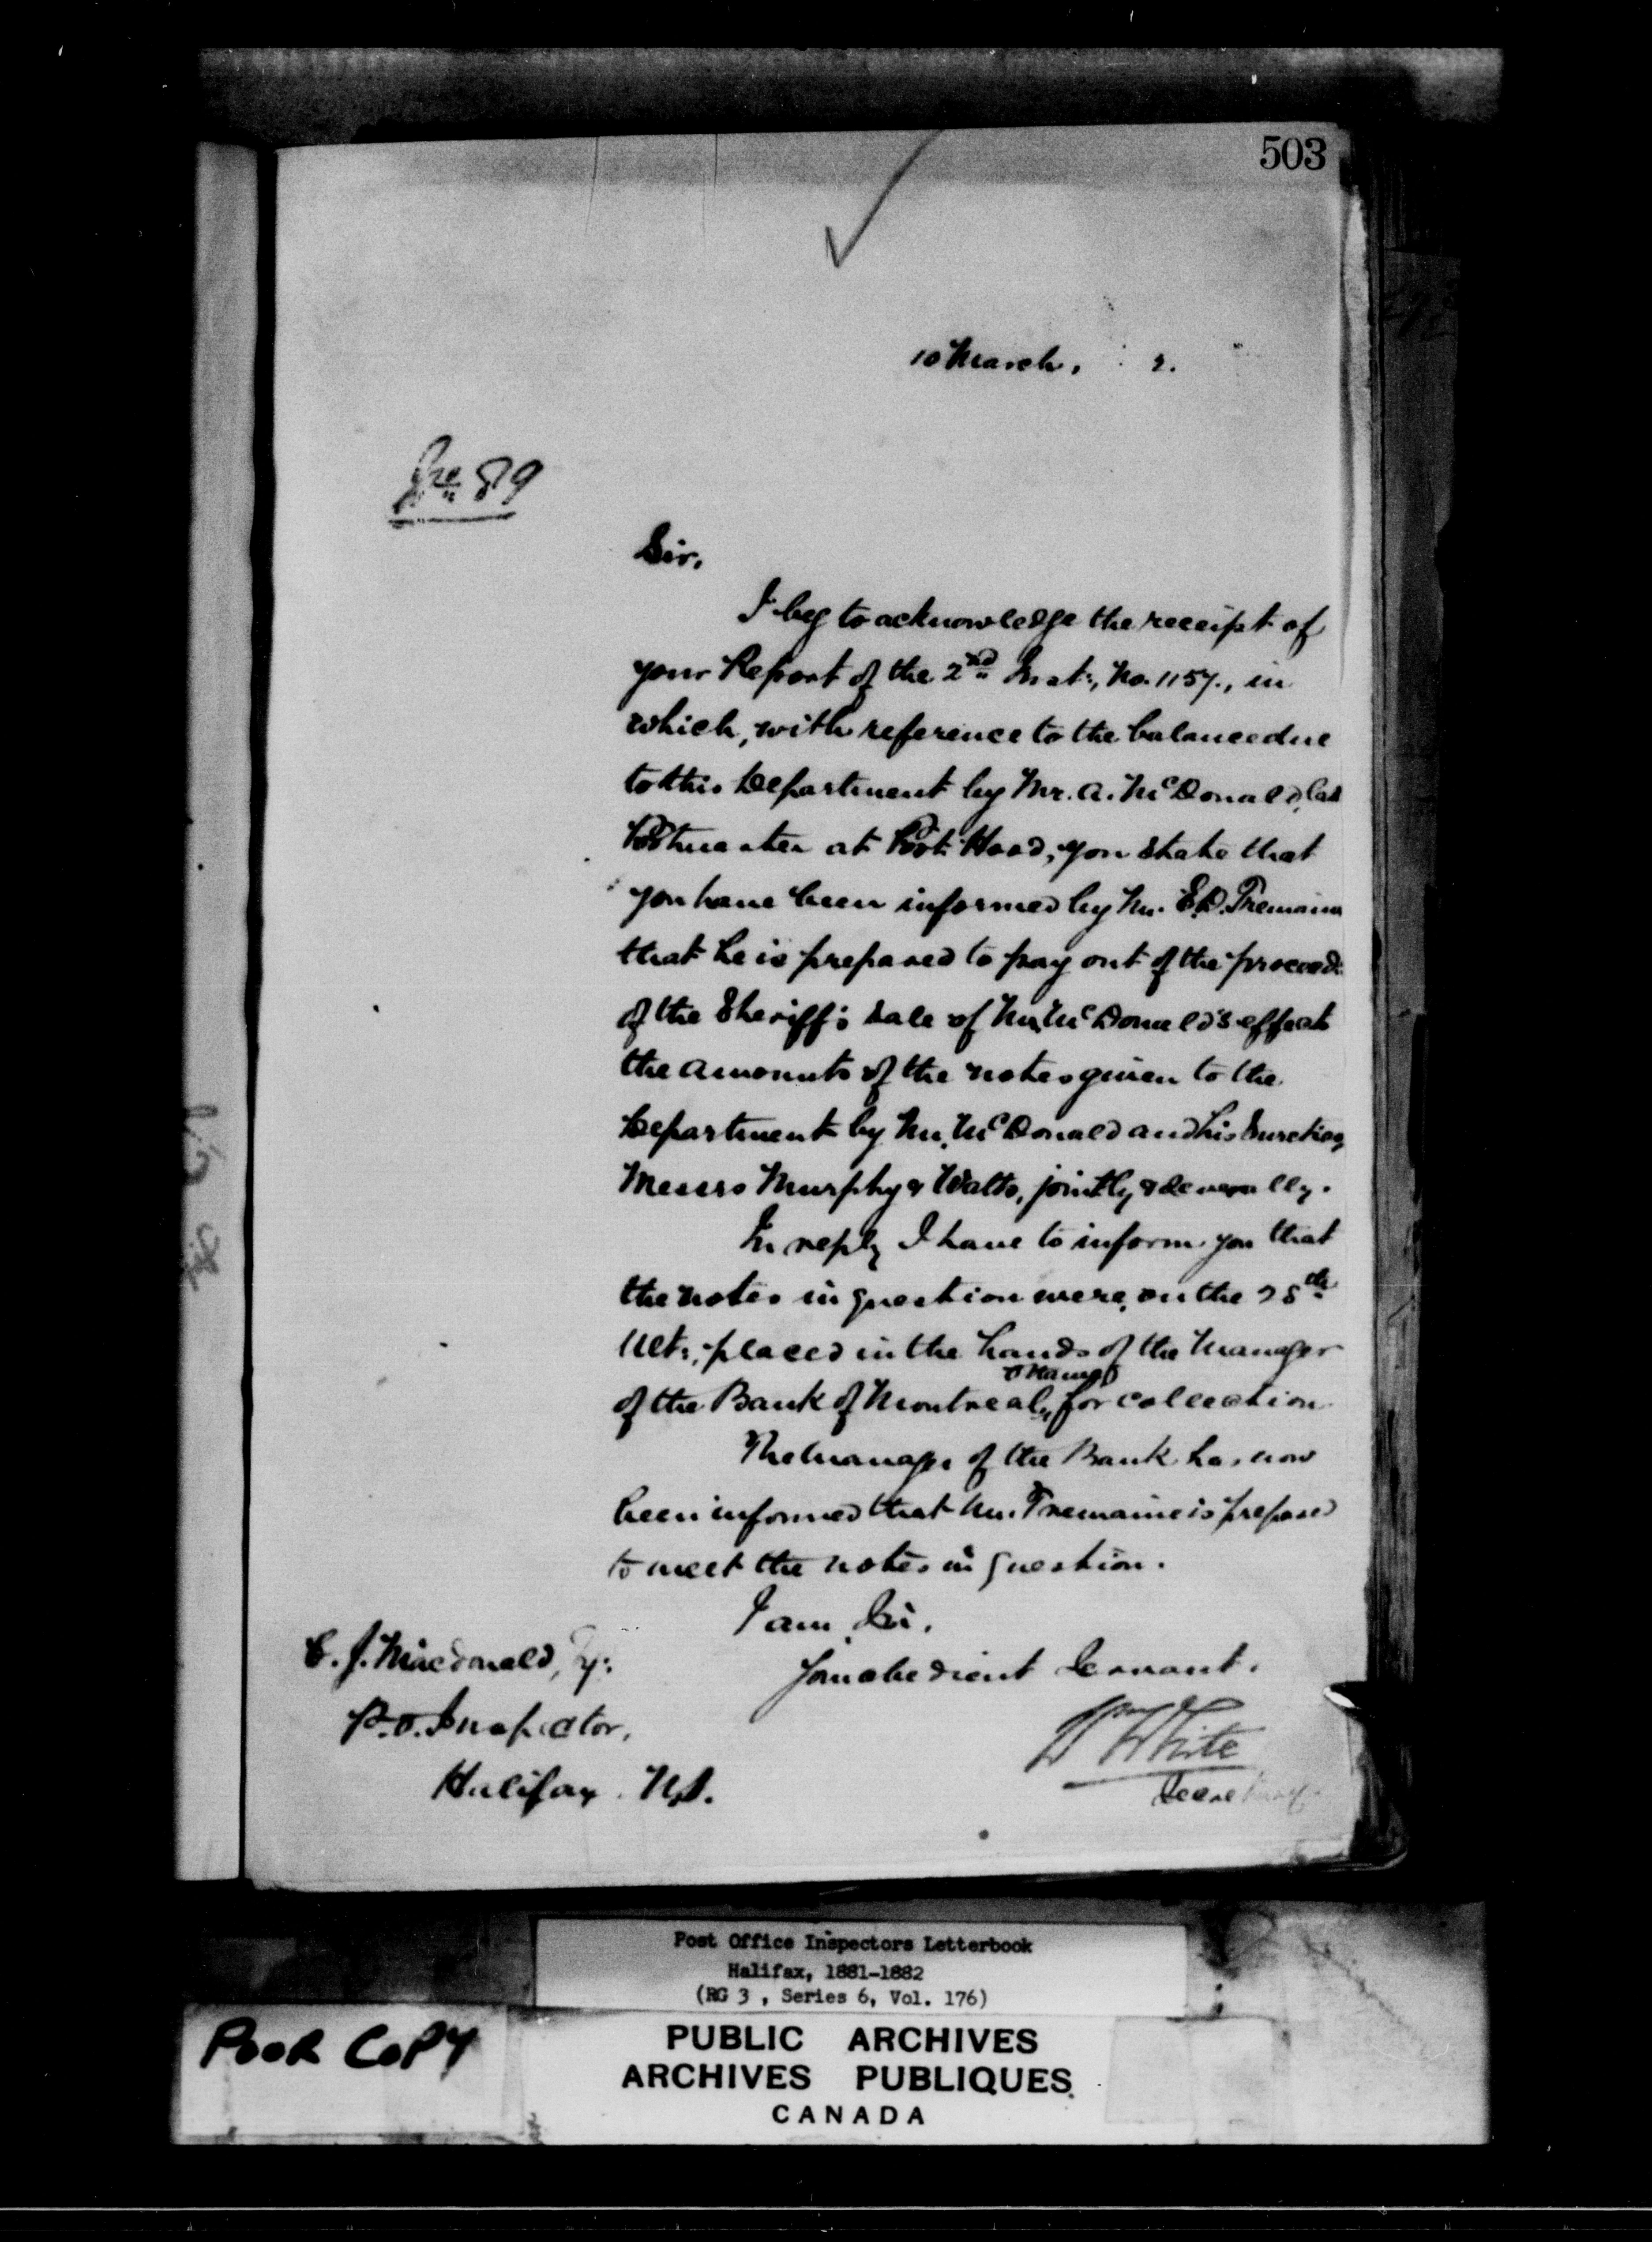 503
10 March, 2.
89
Sir,
I beg to acknowledge the receipt of
your Report of the 2nd Inst:, No. 1157., in
which, with reference to the balance due
to this Department by Mr. A. McDonald, late
Postmaster at Port Hood, you state that
you have been informed by Mr. E.D. Tremaine
that he is prepared to pay out of the proceeds
of the Sheriff's sale of Mr. McDonald's effects
the amounts of the notes given to the
Department by Mr. McDonald and his Sureties,
Messrs Murphy & Watts, jointly & severally.
In reply I have to inform you that
the notes in question were, on the 28th
Ult:, placed in the hands of the Manager
Ottawa
of the Bank of Montreal, for collection
The Manager of the Bank has now
been informed that Mr. Tremaine is prepared
to meet the notes in question.
I am, Sir,
Your obedient Servant.
Wm White
Secretary
C. J. Macdonald,
P.O. Inspector,
Halifax. N.S.
Post Office Inspectors Letterbook
Halifax, 1881-1882
(RG 3 , Series 6, Vol. 176)
POOR COPY
PUBLIC ARCHIVES
ARCHIVES PUBLIQUES
CANADA